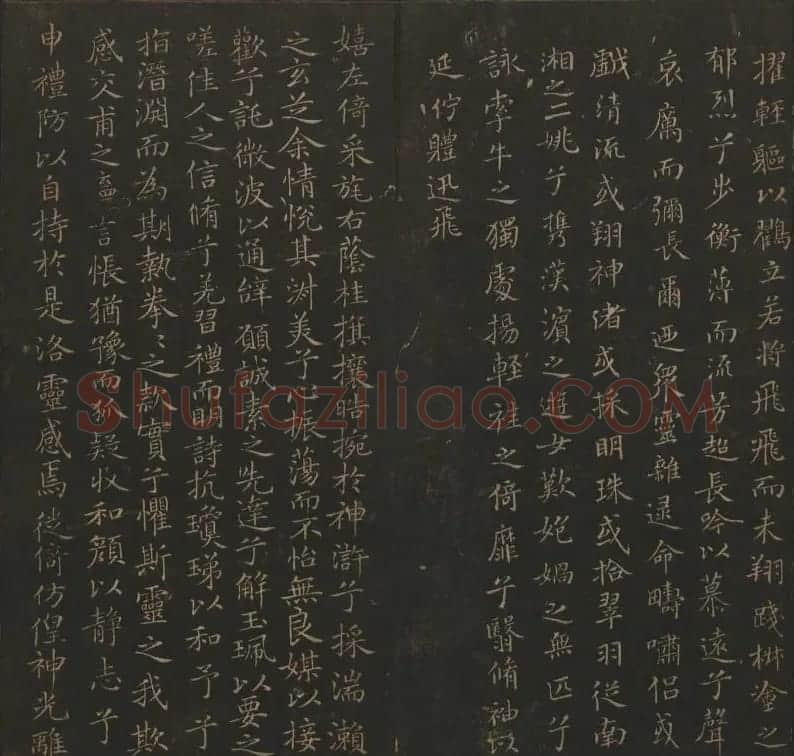 擢輕軀以鸖立若將飛飛而未翔踐椒塗之
郁烈兮步衡薄而流芳超長吟以慕遠兮聲
哀厲而彌長爾迺衆靈雜遝命疇嘯侶或
戲清流或翔神渚或採明珠或拾翠羽從南
湘之二姚兮携漢濱之遊女歎匏媧之無匹兮
詠牽牛之獨處揚輕袿之倚靡兮翳脩袖以
延佇體迅飛
嬉左倚采旄右蔭桂旗攘皓捥於神滸兮採湍瀨
之玄芝余情悅其淑美兮心振蕩而不怡無良媒以接
歡兮託微波以通辭願誠素之先達兮解玉珮以要之
嗟佳人之信脩兮羌習禮而明詩抗瓊珶以和予兮
指潛淵而為期執拳〻之款實兮懼斯靈之我欺
感交甫之棄言悵猶豫而狐疑收和顏以靜志兮
申禮防以自持於是洛靈感焉徙倚仿偟神光離
Shufaziliao.COM